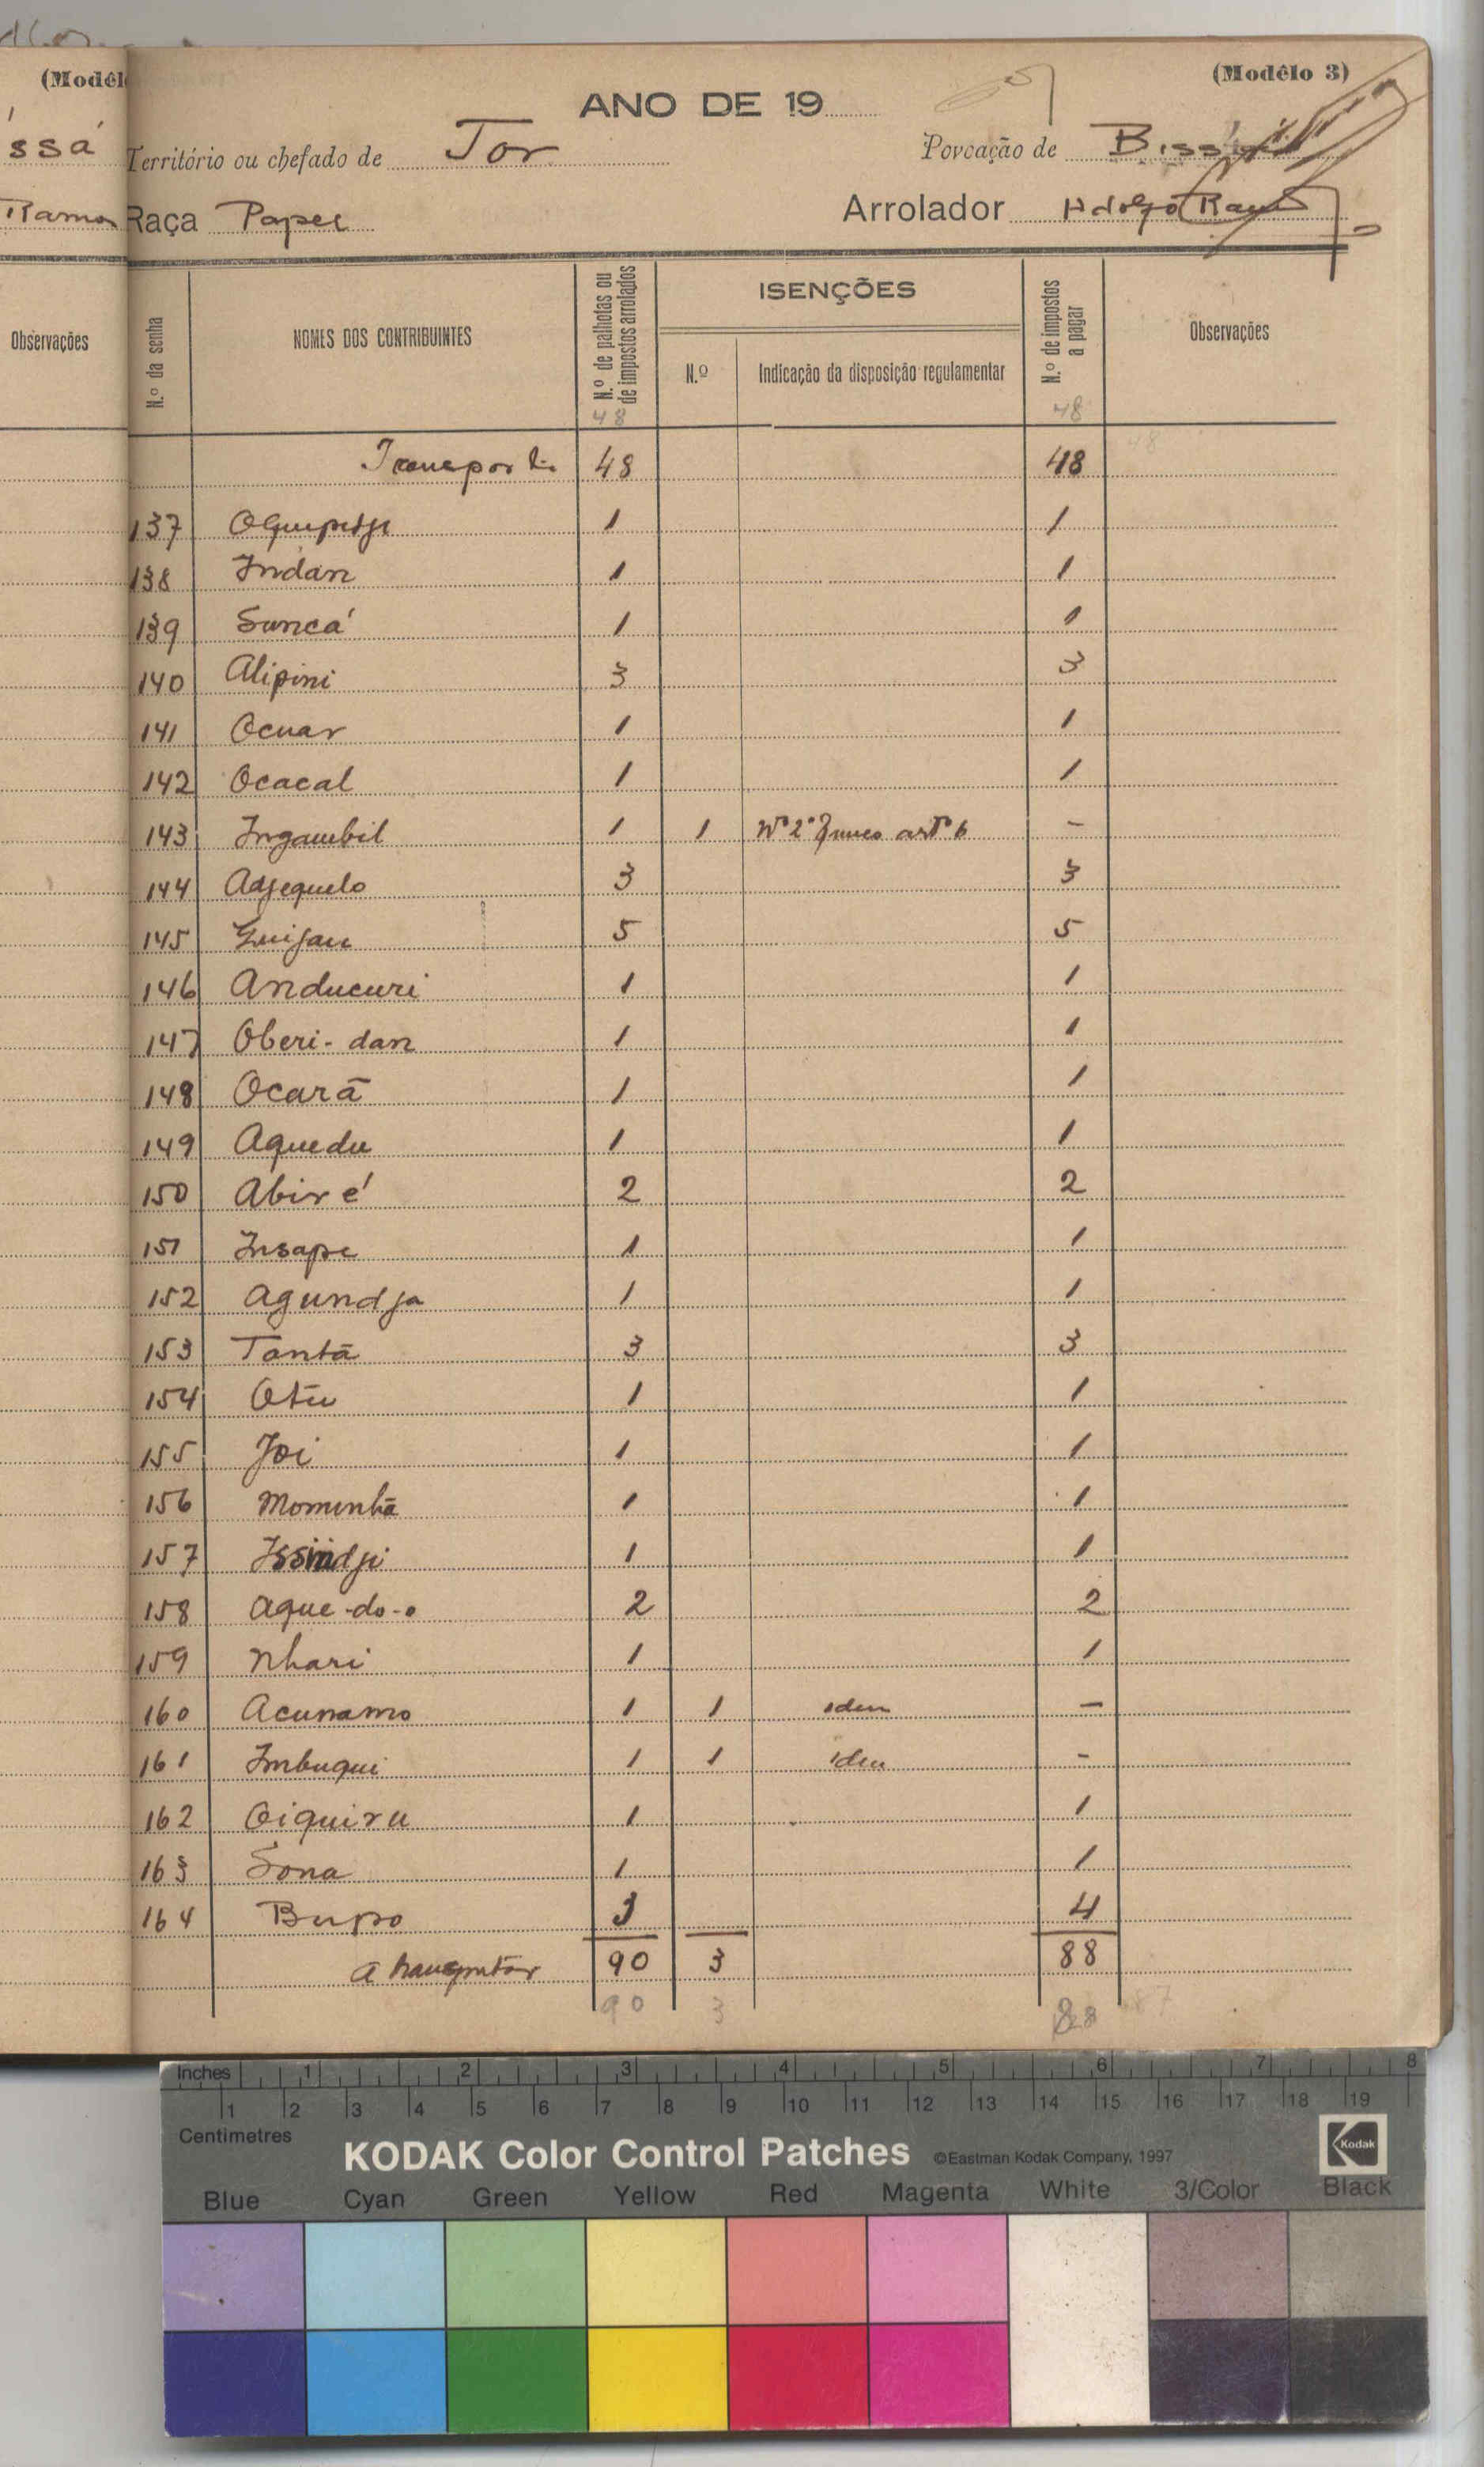 (Modêlo 3)
ANO DE 19
ssá
Território ou chefado de Tor
Povoação de Bissá
Ramos
Raça Papel
Arrolador Adolfo Ramos
Observações
N.º da senha
NOMES DOS CONTRIBUINTES
N.º de palhotas ou de impostos arrolados
ISENÇÕES
N.º
Indicação da disposição regulamentar
N.º de impostos a pagar
Observações
48 48 48
Transporte 48 48
137 1 1
138 Indan 1 1
139 Suncá 1 1
140 Alipini 3 3
141 Ocuar 1 1
142 Ocacal 1 1
143 Ingambil 1 1 Nº 2º artº 6 -
144 Adjequelo 3 3
145 Guijau 5 5
146 Anducuri 1 1
147 Oberi-dan 1 1
148 Ocarã 1 1
149 Aquedu 1 1
150 Abiré 2 2
151 Insape 1 1
152 Agundja 1 1
153 Tantã 3 3
154 Otu 1 1
155 Joi 1 1
156 Mominhã 1 1
157 Issindji 1 1
158 Aque-do-o 2 2
159 Nhari 1 1
160 Acunamo 1 1 idem -
161 Imbuqui 1 1 idem -
162 Oiquiru 1 1
163 Sona 1 1
164 Bupo 3 4
A transportar 90 3 88
90 3 88 87
Inches 1 2 3 4 5 6 7 8
1 2 3 4 5 6 7 8 9 10 11 12 13 14 15 16 17 18 19
Centimetres
KODAK Color Control Patches ©Eastman Kodak Company, 1997 Kodak
Blue Cyan Green Yellow Red Magenta White 3/Color Black